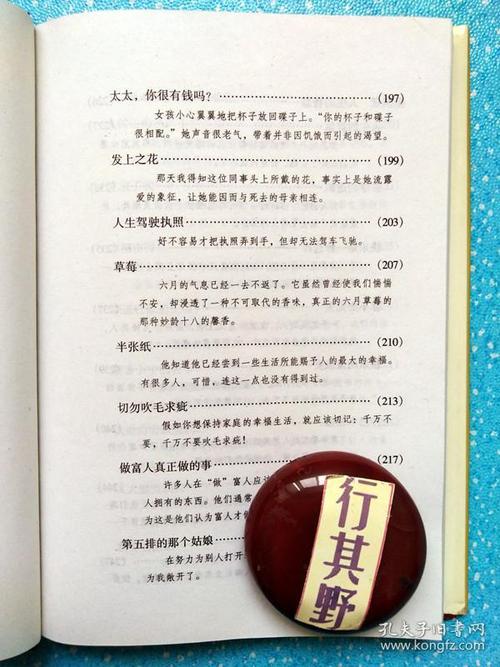 太太，你很有钱吗？ (197)
女孩小心翼翼地把杯子放回碟子上。“你的杯子和碟子
很相配。”她声音很老气，带着并非因饥饿而引起的渴望。
发上之花 (199)
那天我得知这位同事头上所戴的花，事实上是她流露
爱的象征，让她能因而与死去的母亲相连。
人生驾驶执照 (203)
好不容易才把执照弄到手，但却无法驾车飞驰。
草莓 (207)
六月的气息已经一去不返了。它虽然曾经使我们惴惴
不安，却浸透了一种不可取代的香味，真正的六月草莓的
那种妙龄十八的馨香。
半张纸 (210)
他知道他已经尝到一些生活所能赐予人的最大的幸福。
有很多人，可惜，连这一点也没有得到过。
切勿吹毛求疵 (213)
假如你想保持家庭的幸福生活，就应该切记：千万不
要，千万不要吹毛求疵！
做富人真正做的事 (217)
许多人在“做”富人应该
人拥有的东西。他们通常
为这是他们认为富人才做
第五排的那个姑娘
在努力为别人打开
为我敞开了。
行其野
孔夫子旧书网
www.kongfz.com